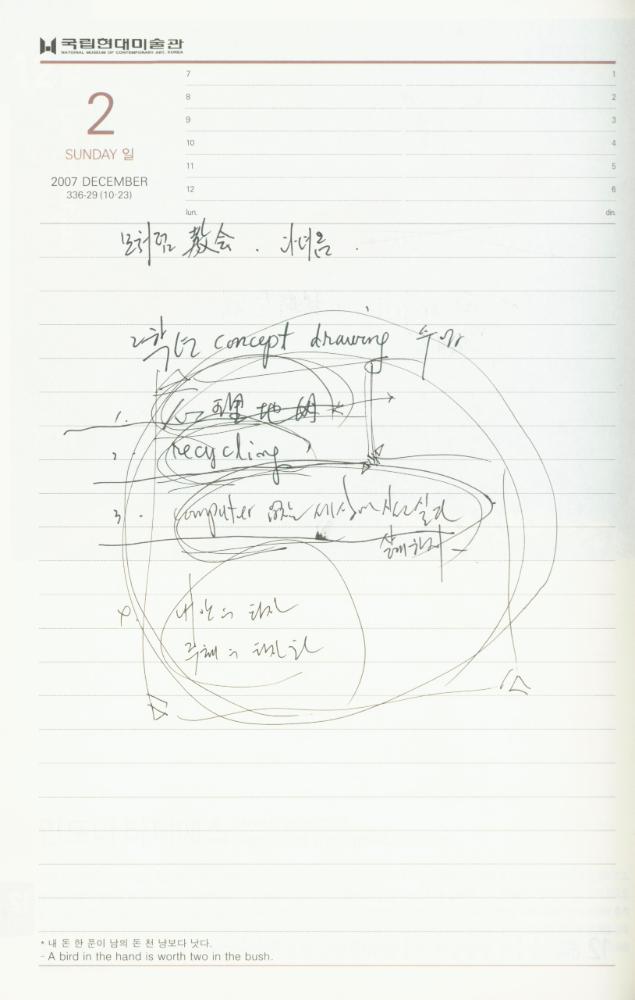 국립현대미술관
NATIONAL MUSEUM OF CONTEMPORARY ART, KOREA
2
SUNDAY 일
2007 DECEMBER
336-29 (10·23)
7 1
8 2
9 3
10 4
11 5
12 6
lun. din.
모처럼 敎会. 다녀옴.
2학년 concept drawing 수업
1. 心理地図
2. recycling
3. computer 없는 세상에 살고싶다
4. 내안의 타자
주체의 타자화
* 내 돈 한 푼이 남의 돈 천 냥보다 낫다.
- A bird in the hand is worth two in the bush.